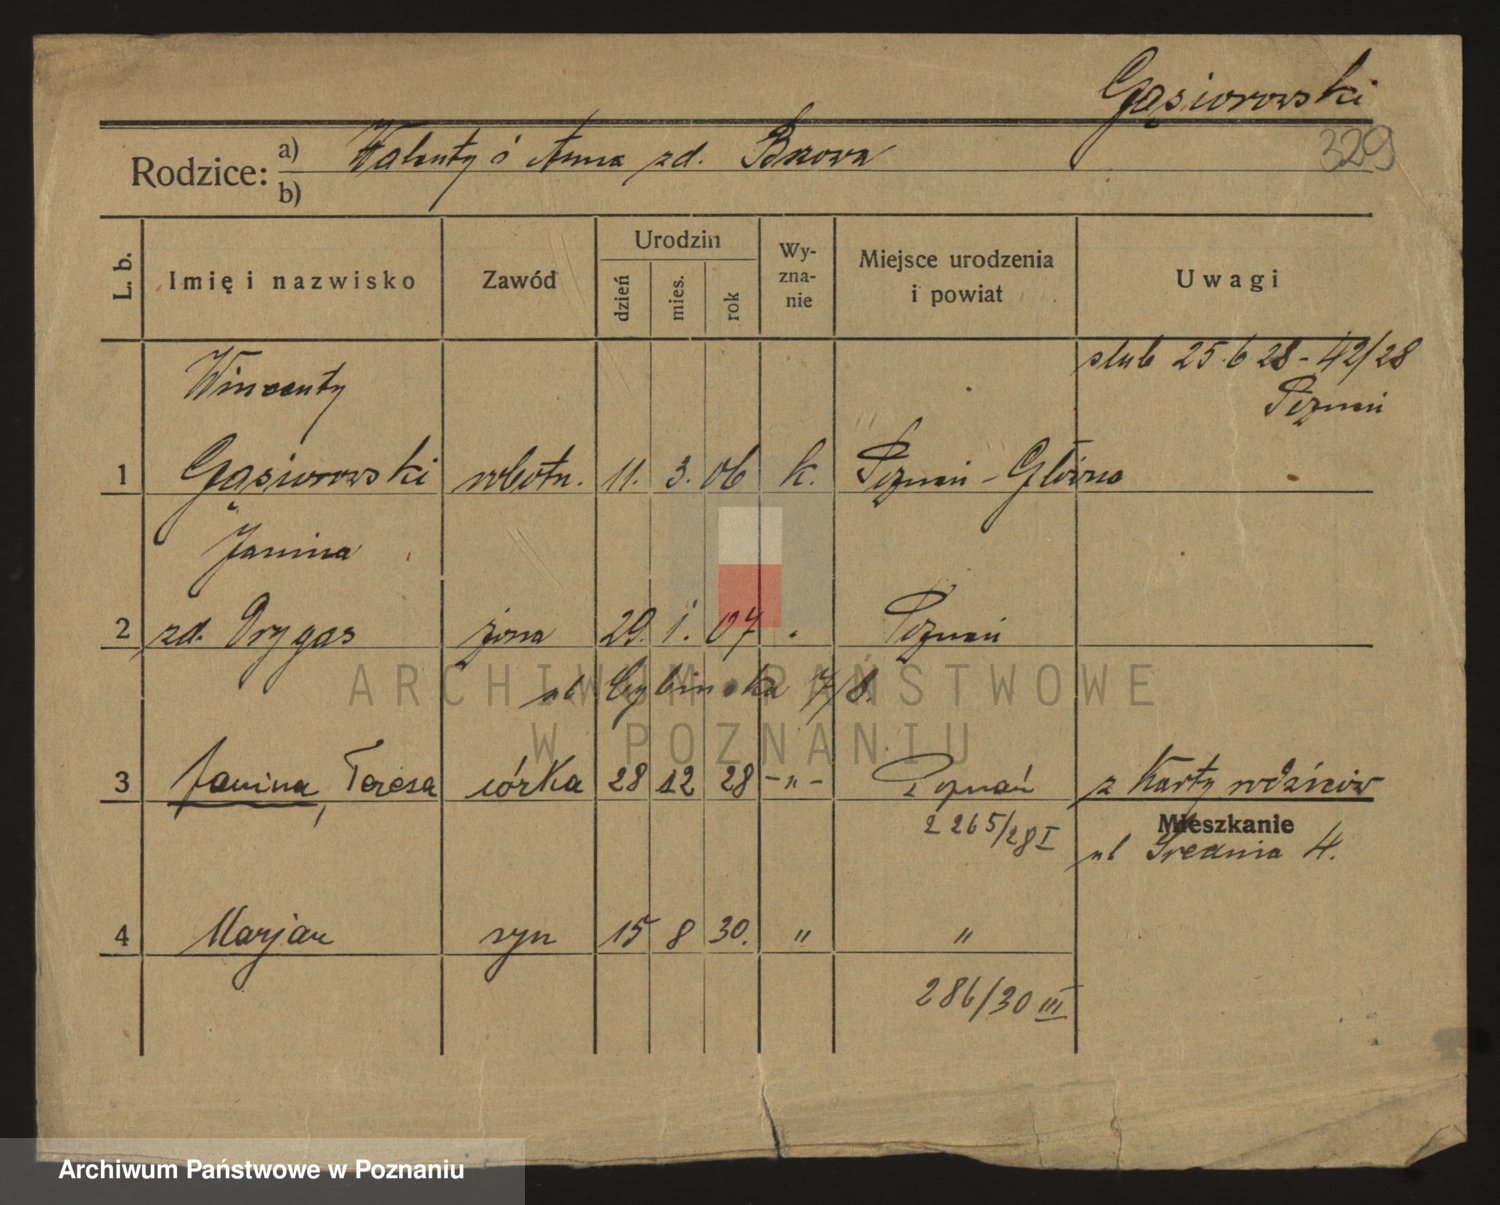 Gąsiorowski
329
Rodzice: a) Walenty ó Anna zd.
b)
L. b. Imię i nazwisko Zawód Urodzin dzień mies. rok Wyznanie Miejsce urodzenia i powiat Uwagi
Wincenty ślub 25.6 28 - 42/28
Poznań
1 Gąsiorowski robotn. 11. 3. 06 k. Poznań - Główna
Janina
2 zd. Drygas żona 29. 1. 07 " Poznań
ul Cybińska 7/8.
3 Janina, Teresa córka 28 12 28 -"- Poznań z Karty rodziców
2265/28 I Mieszkanie
ul Średnia 4.
4 Marjan syn 15 8 30. " "
286/30 III
ARCHIWUM PAŃSTWOWE
W POZNANIU
Archiwum Państwowe w Poznaniu